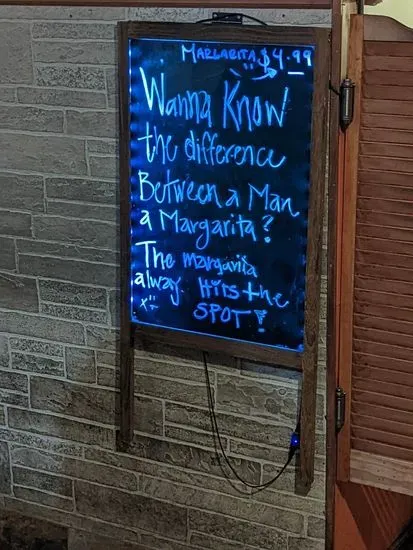 MARGARITA $4.99
Wanna Know
the difference
Between a Man
a Margarita?
The margarita
alway HITS the
SPOT!